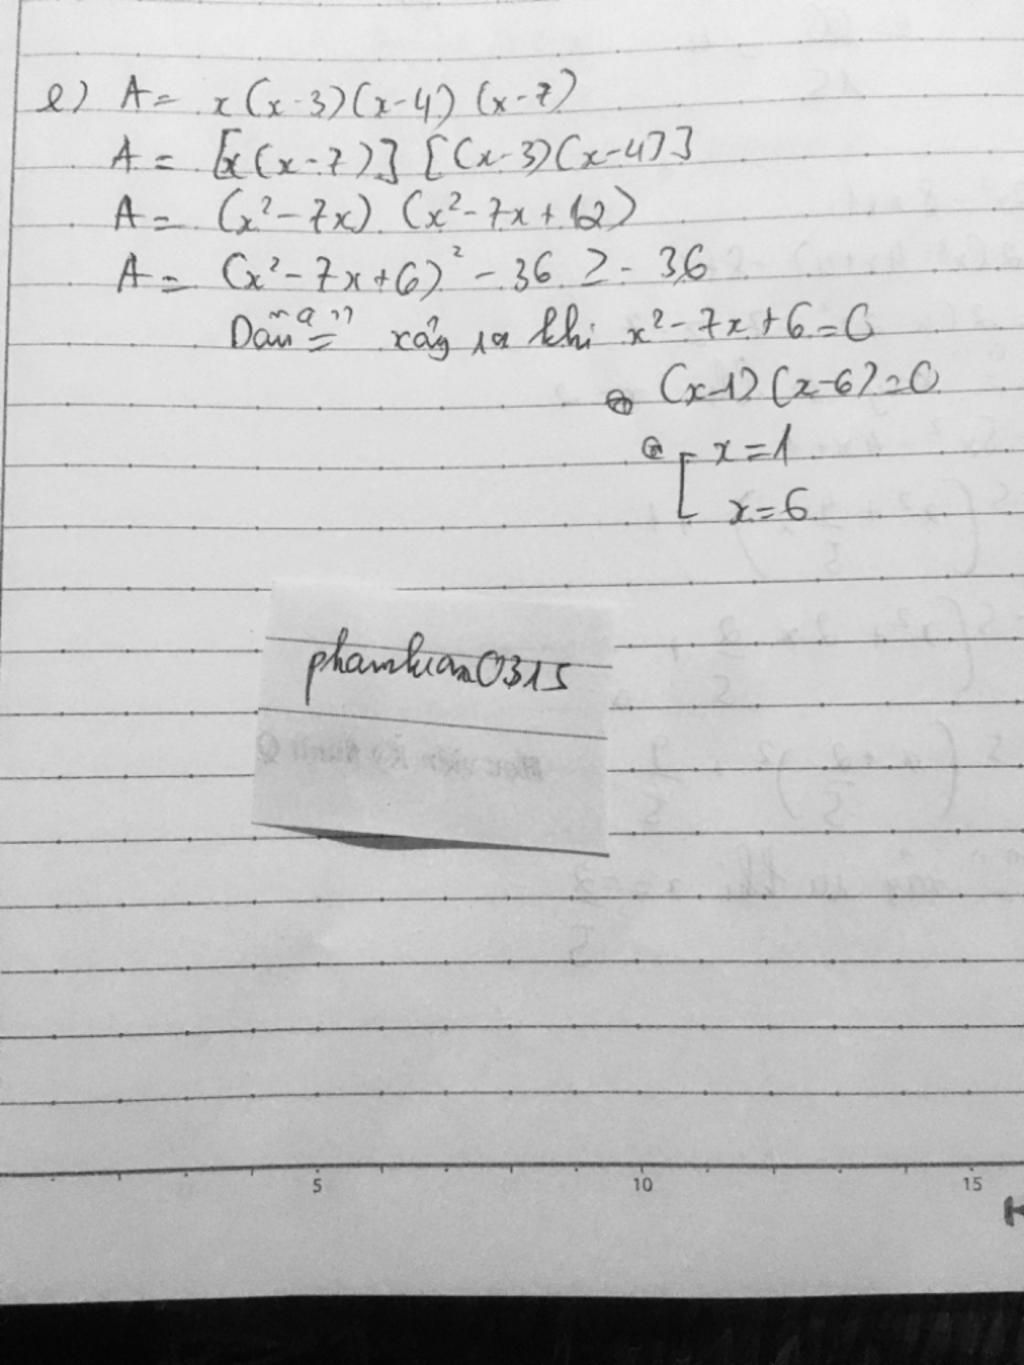 e) A = x(x-3)(x-4)(x-7)
A = [x(x-7)] [(x-3)(x-4)]
A = (x²-7x).(x²-7x+12)
A = (x²-7x+6)² - 36 ≥ - 36
Dấu "=" xảy ra khi x²-7x+6=0
⇔ (x-1)(x-6)=0
⇔ [ x=1
x=6
0315
5 10 15